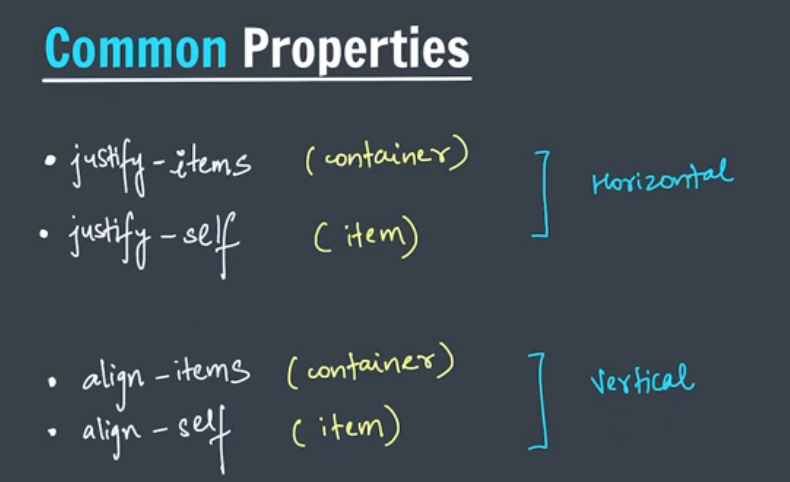 Common Properties
• justify-items (container)
• justify-self (item)
Horizontal
• align-items (container)
• align-self (item)
Vertical